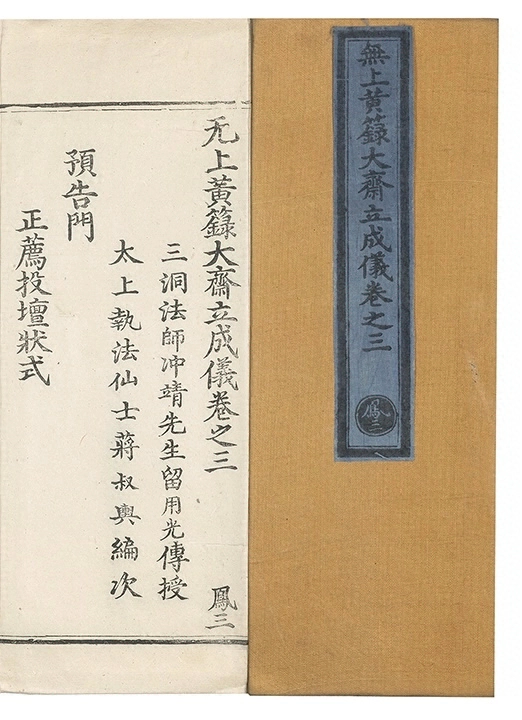 無上黃籙大齋立成儀卷之三
鳳三
无上黃籙大齋立成儀卷之三 鳳三
三洞法師冲靖先生留用光傳授
太上執法仙士蔣叔輿編次
預告門
正薦投壇狀式